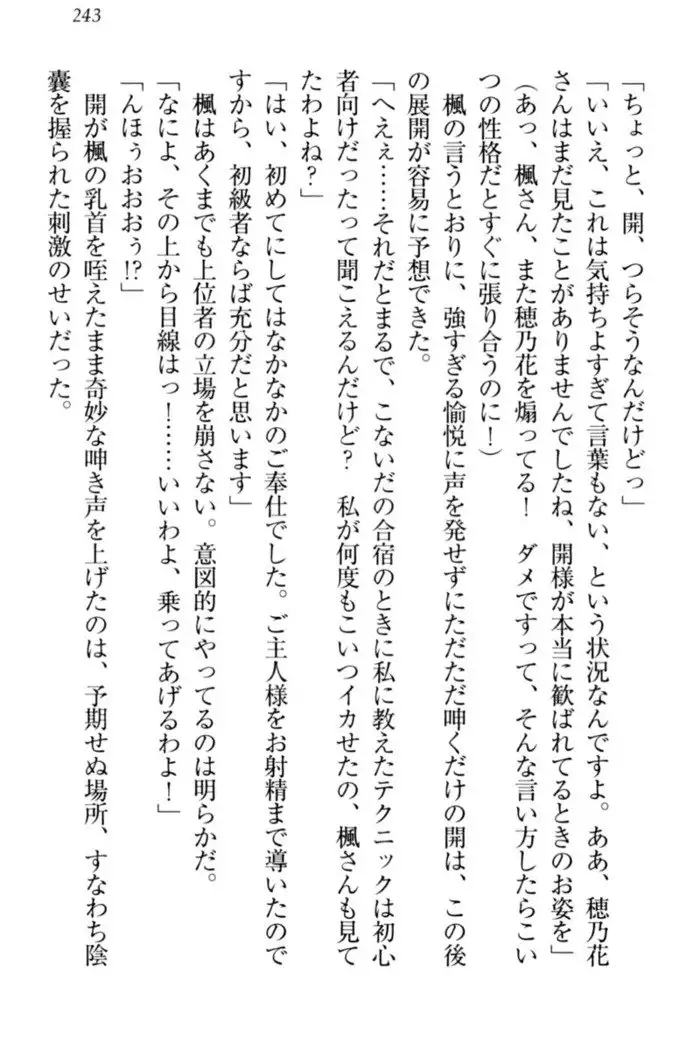 243
「ちょっと、開、つらそうなんだけどっ」
「いいえ、これは気持ちよすぎて言葉もない、という状況なんですよ。ああ、穂乃花
さんはまだ見たことがありませんでしたね、開様が本当に歓ばれてるときのお姿を」
(あっ、楓さん、また穂乃花を煽ってる！　ダメですって、そんな言い方したらこい
つの性格だとすぐに張り合うのに！)
　楓の言うとおりに、強すぎる愉悦に声を発せずにただただ呻くだけの開は、この後
の展開が容易に予想できた。
「へえぇ……それだとまるで、こないだの合宿のときに私に教えたテクニックは初心
者向けだったって聞こえるんだけど？　私が何度もこいつイカせたの、楓さんも見て
たわよね？」
「はい、初めてにしてはなかなかのご奉仕でした。ご主人様をお射精まで導いたので
すから、初級者ならば充分だと思います」
　楓はあくまでも上位者の立場を崩さない。意図的にやってるのは明らかだ。
「なによ、その上から目線はっ！……いいわよ、乗ってあげるわよ！」
「んほぅおおおぅ!?」
　開が楓の乳首を咥えたまま奇妙な呻き声を上げたのは、予期せぬ場所、すなわち陰
嚢を握られた刺激のせいだった。